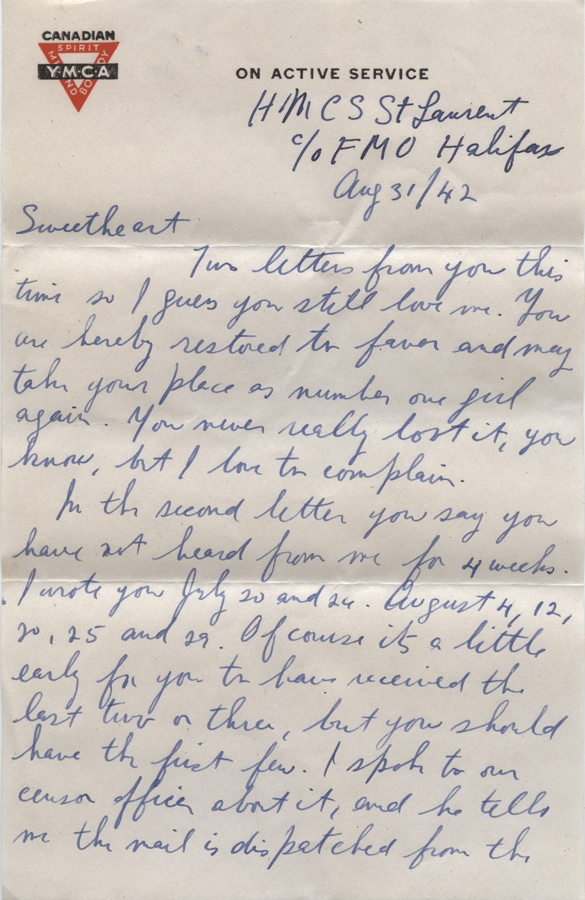 CANADIAN
SPIRIT
Y·M·C·A
MIND BODY
ON ACTIVE SERVICE
HMCS St Laurent
c/o FMO Halifax
Aug 31/42
Sweetheart
Two letters from you this
time so I guess you still love me. You
are hereby restored to favor and may
take your place as number one girl
again. You never really lost it, you
know, but I love to complain.
In the second letter you say you
have not heard from me for 4 weeks.
I wrote you July 20 and 24. August 4, 12,
20, 25 and 29. Of course its a little
early for you to have received the
last two or three, but you should
have the first few. I spoke to our
censor officer about it, and he tells
me the mail is dispatched from the